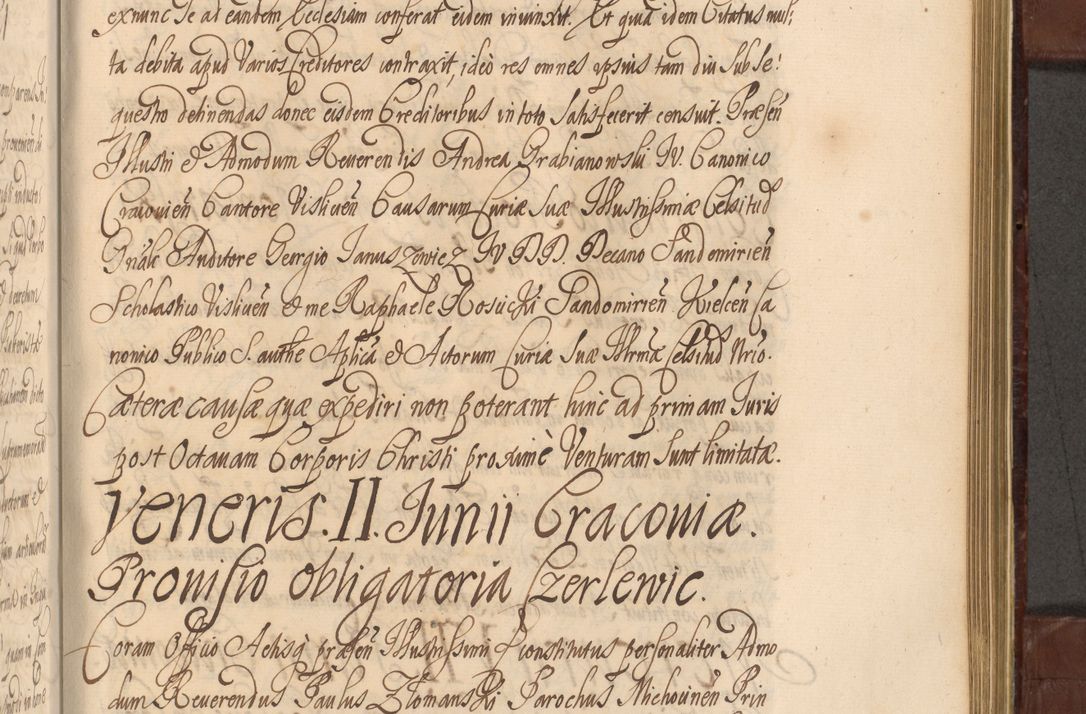 exnunc se ad eandem Ecclesiam conferat eidem iniunxit. Et quia idem Citatus mul:
ta debita apud Varios Creditores contraxit, ideò res omnes ipsius tam diu sub se:
questro detinendas donec eisdem Creditoribus in toto satisfecerit censuit. Præsen
Illustri & Admodum Reuerendis Andrea Grabianowski IV. Canonico
Cracouien Cantore Vislicen Causarum Curiæ suæ Illustrissimæ Celsitud
Gnalc Auditore Georgio Januszewicz IV DD. Decano Sandomirien
Scholastico Vislicen & me Raphaele Rosicki Sandomirien Kielcen Ca
nonico Publico S. authe Aplica & Actorum Curiæ suæ Illrmæ Celsitud Nrio.
Cæteræ causæ quæ expediri non poterant hinc ad primam Juris
post Octauam Corporis Christi proximè Venturam sunt limitatæ.
Veneris. II. Junii Cracouiæ.
Prouisio obligatoria Czerlewic.
Coram Officio Actisq præsen Illustrissimi constitutus personaliter Admo
dum Reuerendus Paulus Zlomanski Parochus Michouinen Prin